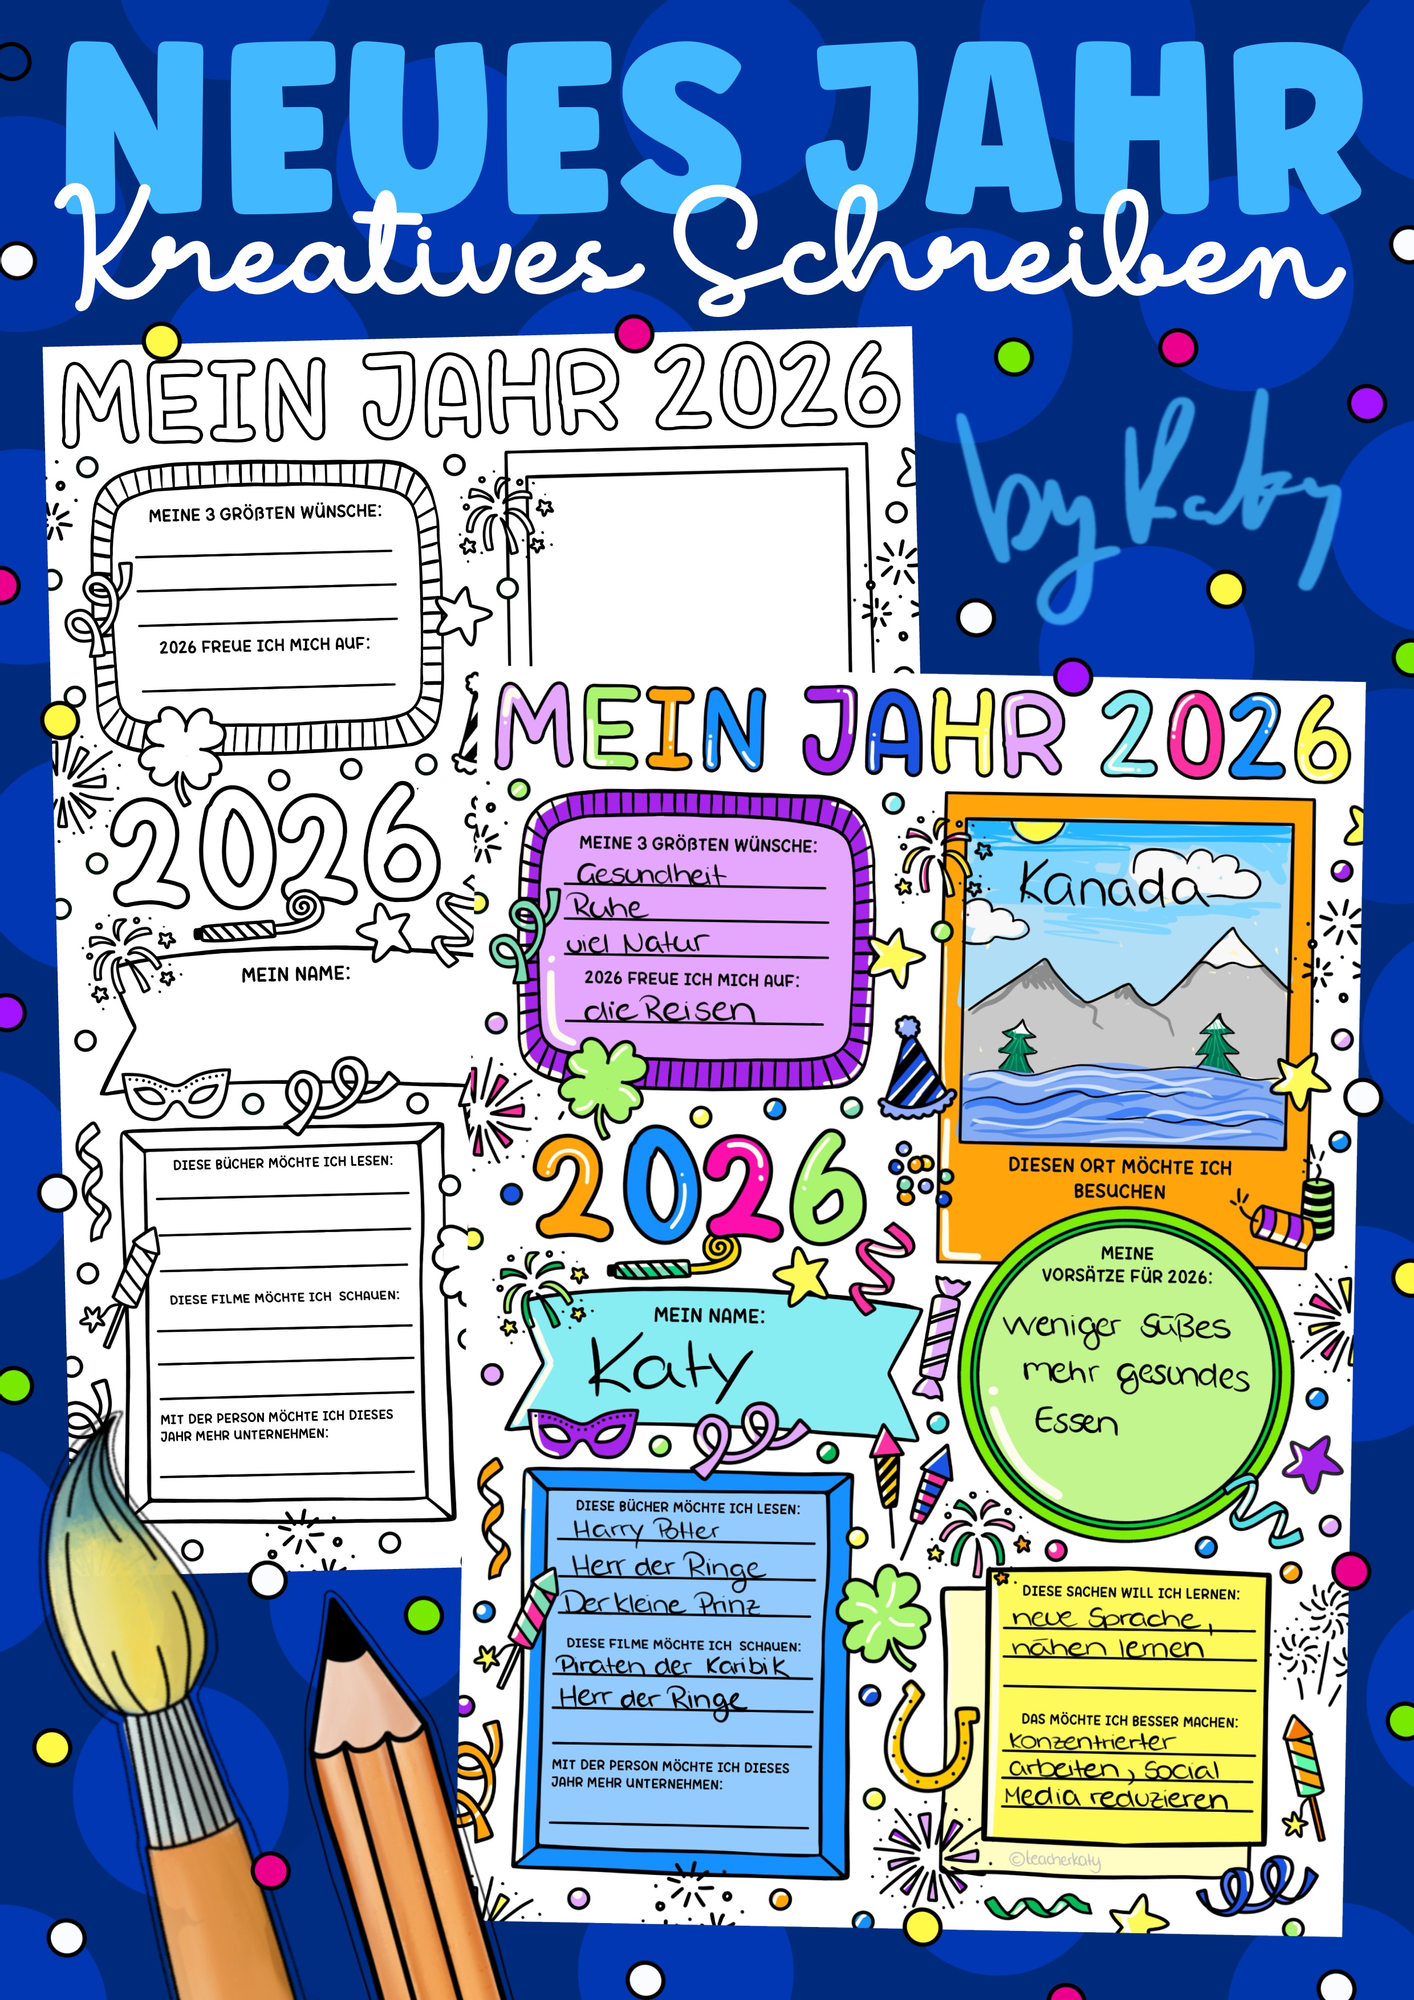 NEUES JAHR
Kreatives Schreiben
by Katy
MEIN JAHR 2026
MEINE 3 GRÖßTEN WÜNSCHE:
2026 FREUE ICH MICH AUF:
2026
MEIN NAME:
DIESE BÜCHER MÖCHTE ICH LESEN:
DIESE FILME MÖCHTE ICH SCHAUEN:
MIT DER PERSON MÖCHTE ICH DIESES
JAHR MEHR UNTERNEHMEN:
MEIN JAHR 2026
MEINE 3 GRÖßTEN WÜNSCHE:
Gesundheit
Ruhe
viel Natur
2026 FREUE ICH MICH AUF:
die Reisen
Kanada
DIESEN ORT MÖCHTE ICH
BESUCHEN
2026
MEIN NAME:
Katy
MEINE
VORSÄTZE FÜR 2026:
weniger Süßes
mehr gesundes
Essen
DIESE BÜCHER MÖCHTE ICH LESEN:
Harry Potter
Herr der Ringe
Der kleine Prinz
DIESE FILME MÖCHTE ICH SCHAUEN:
Piraten der Karibik
Herr der Ringe
MIT DER PERSON MÖCHTE ICH DIESES
JAHR MEHR UNTERNEHMEN:
DIESE SACHEN WILL ICH LERNEN:
neue Sprache,
nähen lernen
DAS MÖCHTE ICH BESSER MACHEN:
Konzentrierter
arbeiten, Social
Media reduzieren
©teacherkaty